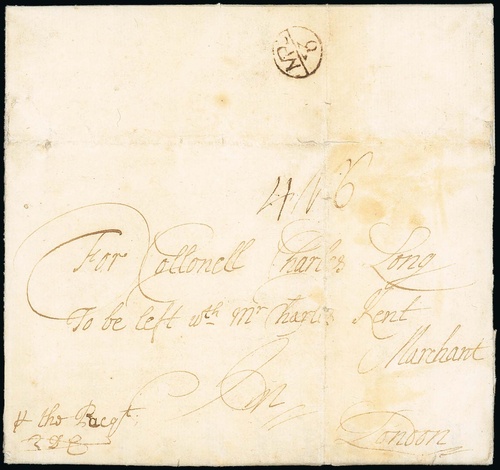 For Collonell Charles Long
To be left wth Mr Charles Kent
Marchant
In
London
the Pacqt